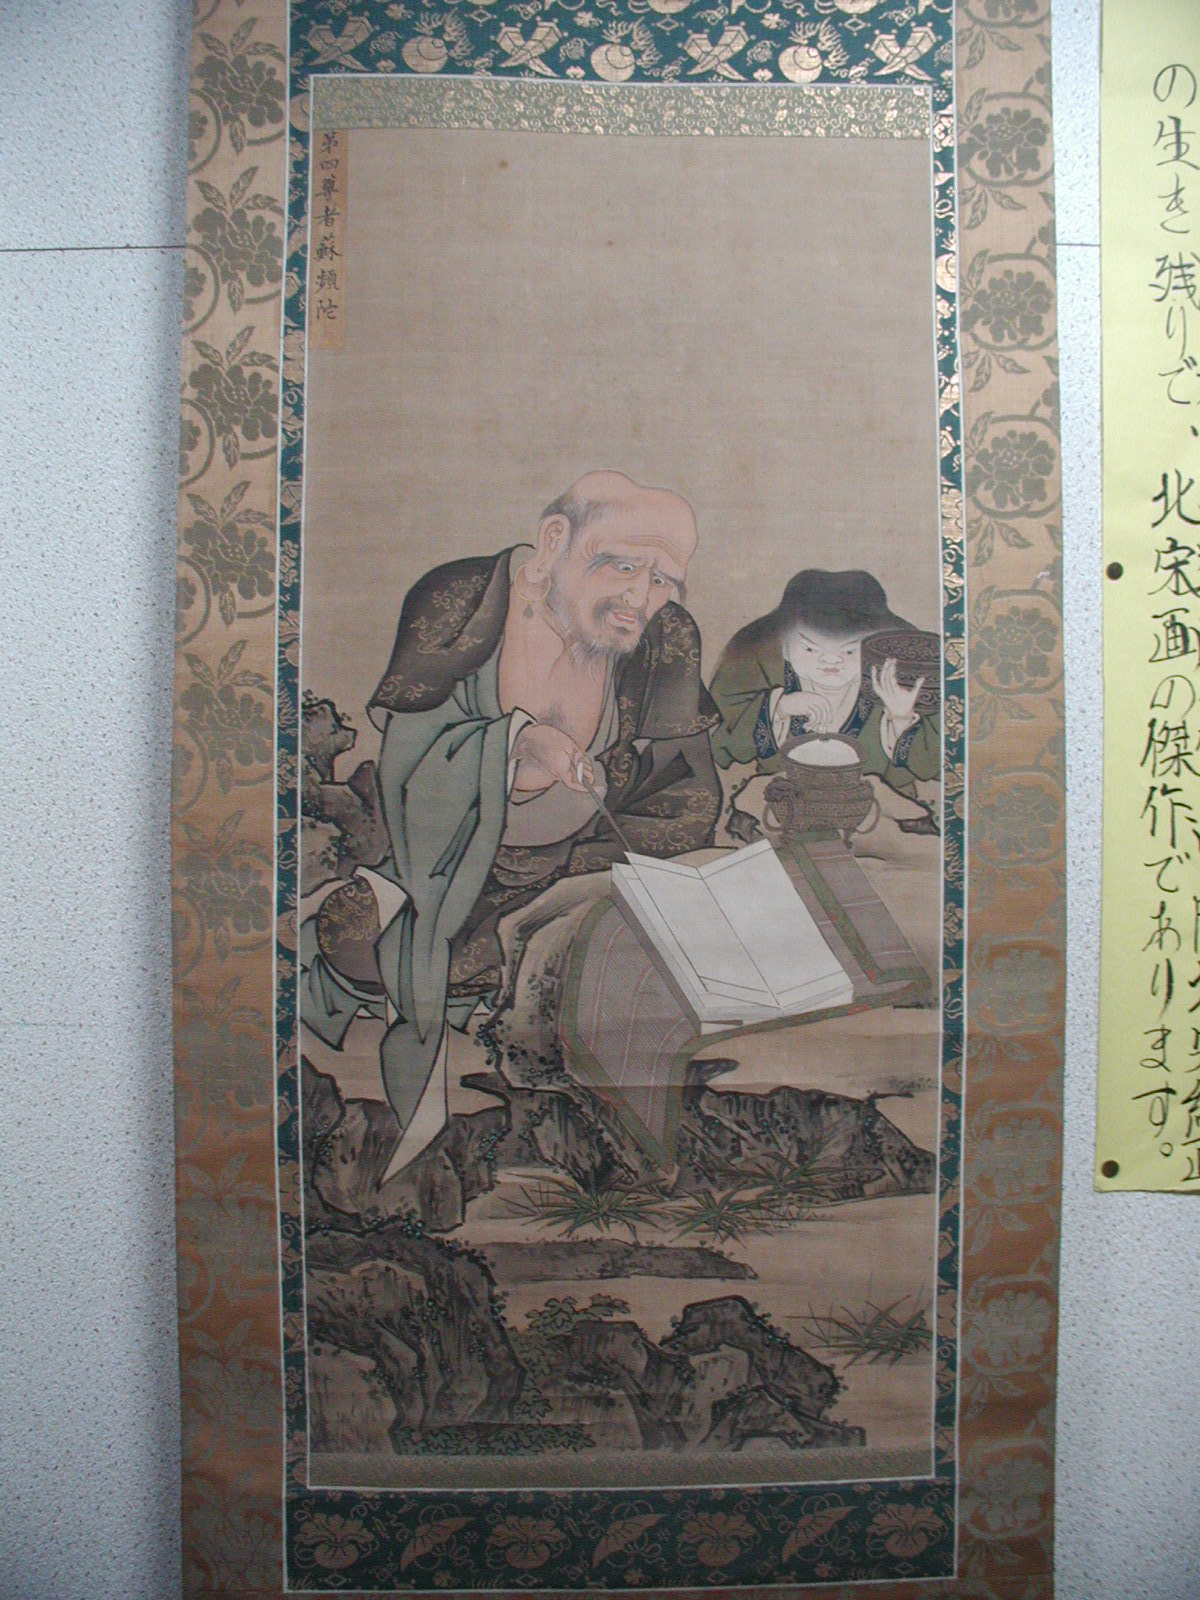 第四尊者蘇頻陀
の生き残りで、北宋画の傑作であります。